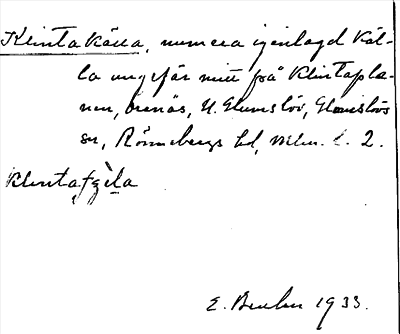 Klintakälla, numera igenlagd käl-
la ungefär mitt på Klintapla-
nen, Örenäs, N. Glumslöv, Glumslövs
sn, Rönnebergs hd, Malm. l. 2.
Klinta
E. 1933.